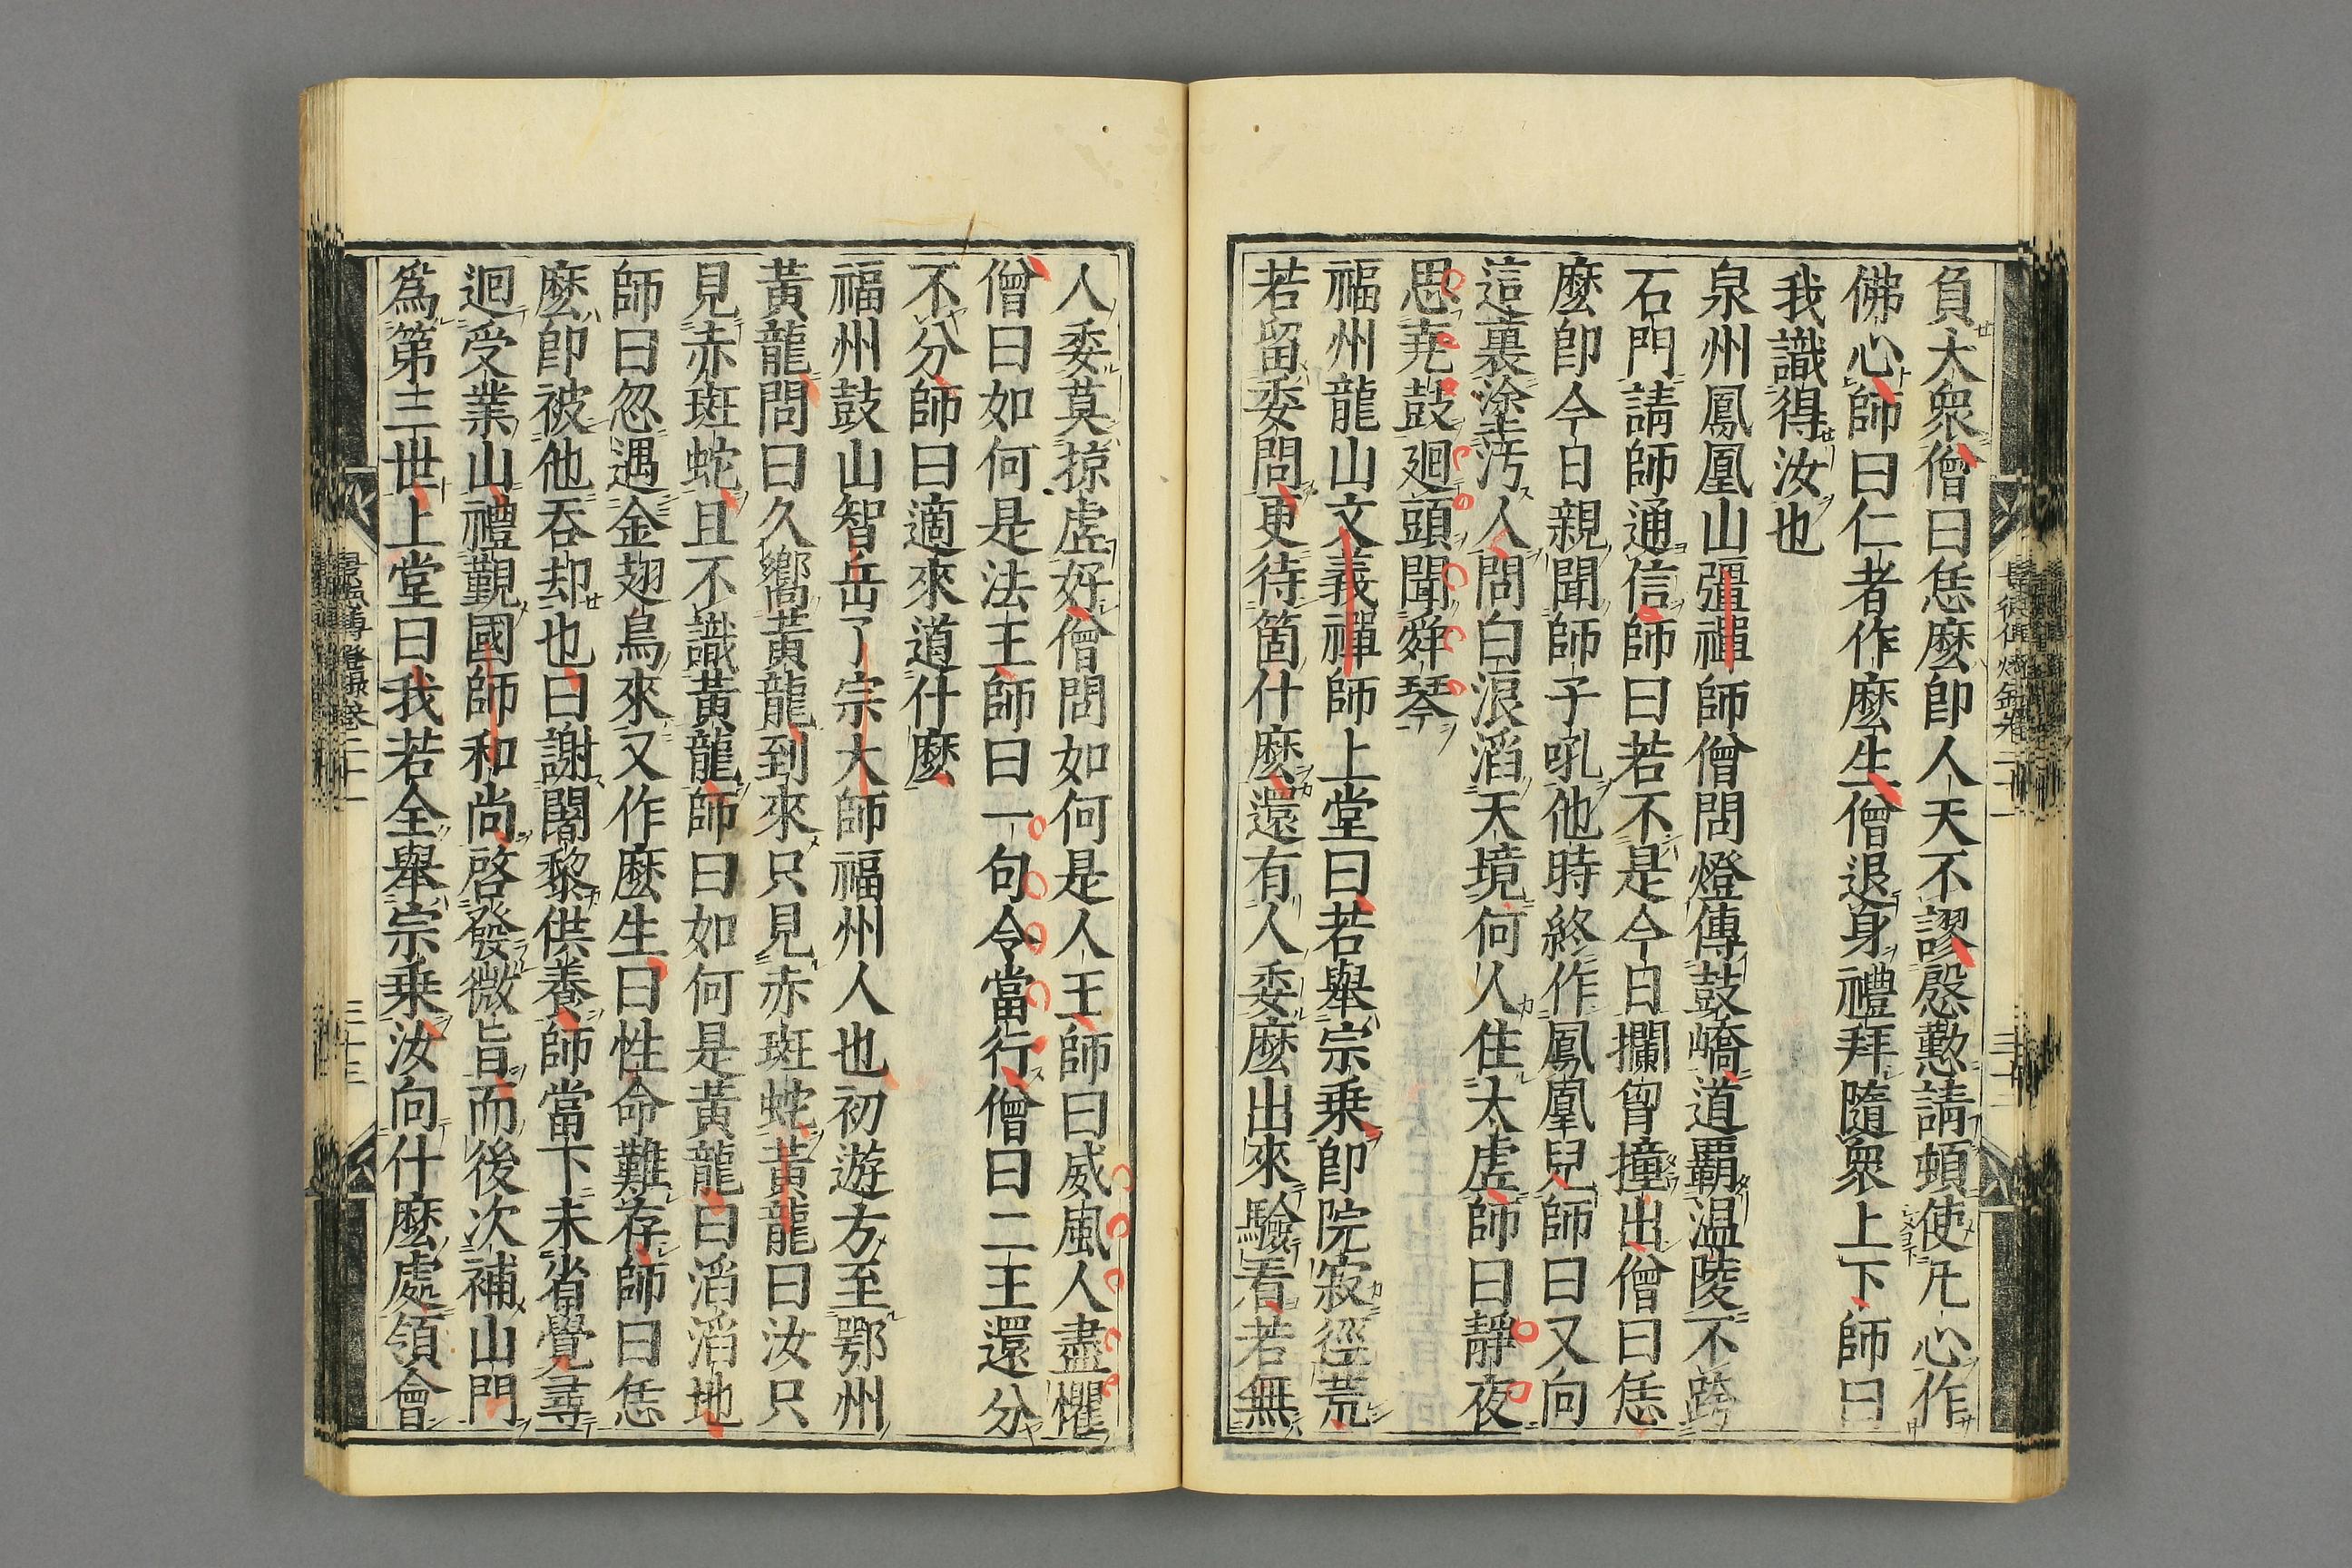 負大衆僧曰恁麽即人天不謬慇懃請頓使凡心作
佛心師曰仁者作麽生僧退身禮拜隨衆上下師曰
我識得汝也
泉州鳳凰山彊禪師僧問燈傳鼓嶠道覇温陵不跨
石門請師通信師曰若不是今日攔胷撞出僧曰恁
麽即今日親聞師子吼他時終作鳳凰兒師曰又向
這裏塗汚人問白浪滔天境何人住太虚師曰靜夜
思尭鼓廻頭聞舜琴
福州龍山文義禪師上堂曰若舉宗乗即院寂徑荒
若留委問更待箇什麽還有人委麽出來驗看若無
人委莫掠虚好僧問如何是人王師曰威風人盡懼
僧曰如何是法王師曰一句令當行僧曰二王還分
不分師曰適來道什麽
福州鼓山智岳了宗大師福州人也初遊方至鄂州
黃龍問曰久嚮黃龍到來只見赤斑蛇黃龍曰汝只
見赤斑蛇且不識黃龍師曰如何是黃龍曰滔滔地
師曰忽遇金翅鳥來又作麽生曰性命難存師曰恁
麽即被他吞却也曰謝闍黎供養師當下未省覺尋
迴受業山禮覲國師和尚啓發微旨而後次補山門
爲第三世上堂曰我若全舉宗乗汝向什麽處領會
景德傳燈録卷二十一
三十三